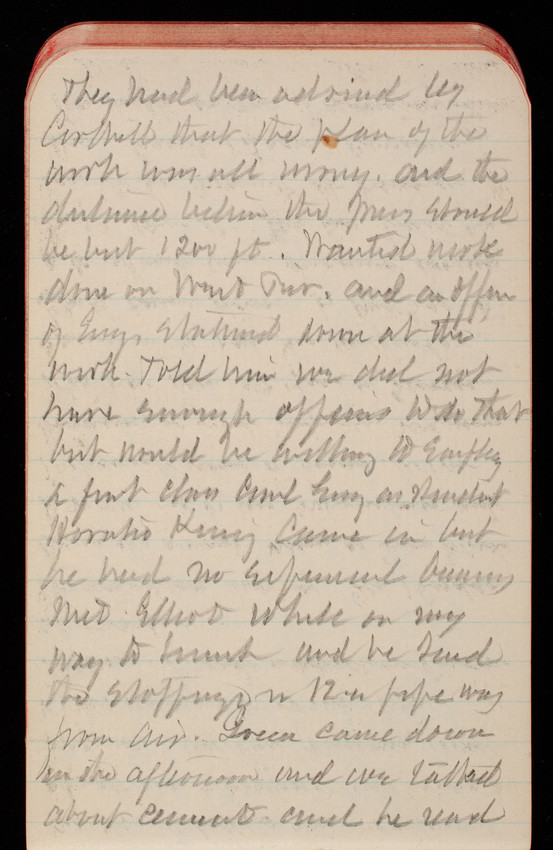 They had been advised by
Corthell that the plan of the
work was all wrong. and the
distance between the piers should
be but 1200 ft. Wanted work
done on West Riv. and an officer
of Engs stationed down at the
work. Told him we did not
have enough officers to do that
but would be willing to employ
a first class Civil Eng as
Horatio King came in but
he had no business
Met Elliot while on my
way to lunch and he said
the stoppage in 12 in pipe was
from air. Green came down
in the afternoon and we talked
about cement and he read